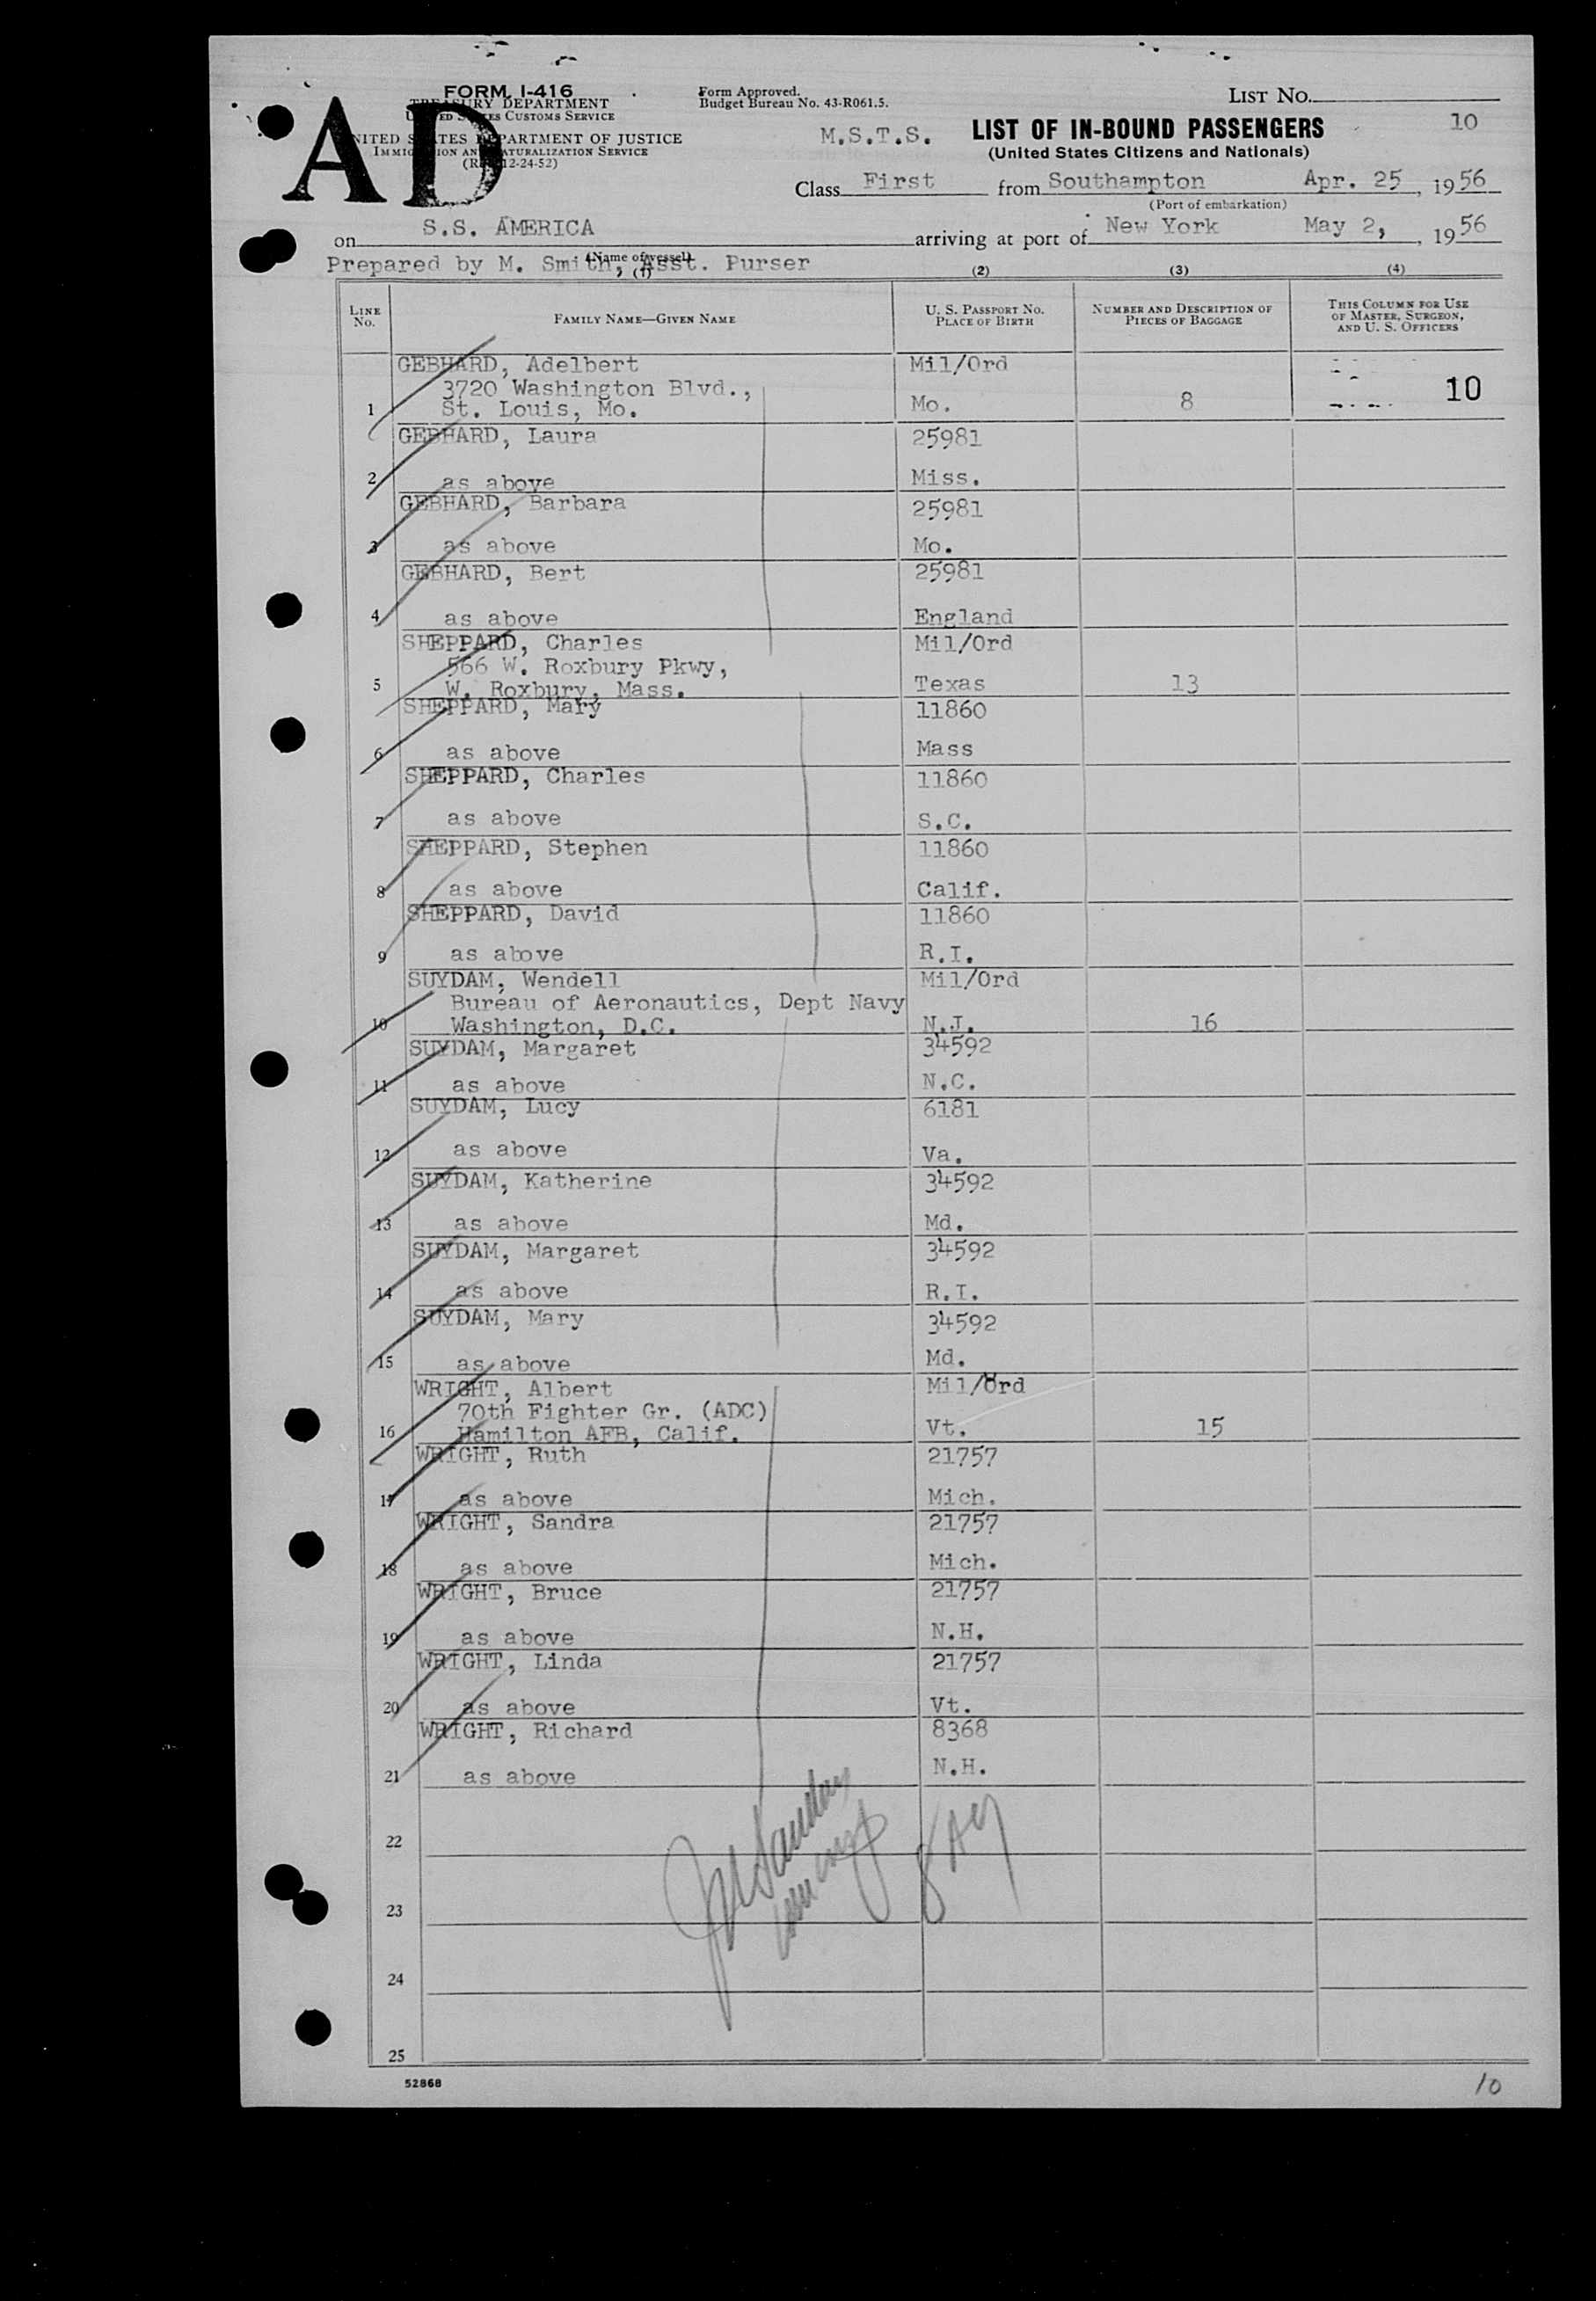 FORM I-416
TREASURY DEPARTMENT
UNITED STATES CUSTOMS SERVICE
UNITED STATES DEPARTMENT OF JUSTICE
IMMIGRATION AND NATURALIZATION SERVICE
(REV. 12-24-52)
AD
Form Approved.
Budget Bureau No. 43-R061.5.
LIST NO.
10
M.S.T.S. LIST OF IN-BOUND PASSENGERS
(United States Citizens and Nationals)
Class First from Southampton Apr. 25, 1956
(Port of embarkation)
on S.S. AMERICA arriving at port of New York May 2, 1956
(Name of vessel)
Prepared by M. Smith, Asst. Purser
(1) (2) (3) (4)
LINE NO.
FAMILY NAME—GIVEN NAME
U. S. PASSPORT NO.
PLACE OF BIRTH
NUMBER AND DESCRIPTION OF
PIECES OF BAGGAGE
THIS COLUMN FOR USE
OF MASTER, SURGEON,
AND U. S. OFFICERS
GEBHARD, Adelbert Mil/Ord
3720 Washington Blvd., 10
1 St. Louis, Mo. Mo. 8
GEBHARD, Laura 25981
2 as above Miss.
GEBHARD, Barbara 25981
3 as above Mo.
GEBHARD, Bert 25981
4 as above England
SHEPPARD, Charles Mil/Ord
566 W. Roxbury Pkwy,
5 W. Roxbury, Mass. Texas 13
SHEPPARD, Mary 11860
6 as above Mass
SHEPPARD, Charles 11860
7 as above S.C.
SHEPPARD, Stephen 11860
8 as above Calif.
SHEPPARD, David 11860
9 as above R.I.
SUYDAM, Wendell Mil/Ord
Bureau of Aeronautics, Dept Navy
10 Washington, D.C. N.J. 16
SUYDAM, Margaret 34592
11 as above N.C.
SUYDAM, Lucy 6181
12 as above Va.
SUYDAM, Katherine 34592
13 as above Md.
SUYDAM, Margaret 34592
14 as above R.I.
SUYDAM, Mary 34592
15 as above Md.
WRIGHT, Albert Mil/Ord
70th Fighter Gr. (ADC)
16 Hamilton AFB, Calif. Vt. 15
WRIGHT, Ruth 21757
17 as above Mich.
WRIGHT, Sandra 21757
18 as above Mich.
WRIGHT, Bruce 21757
19 as above N.H.
WRIGHT, Linda 21757
20 as above Vt.
WRIGHT, Richard 8368
21 as above N.H.
22
23
24
25
52868
10